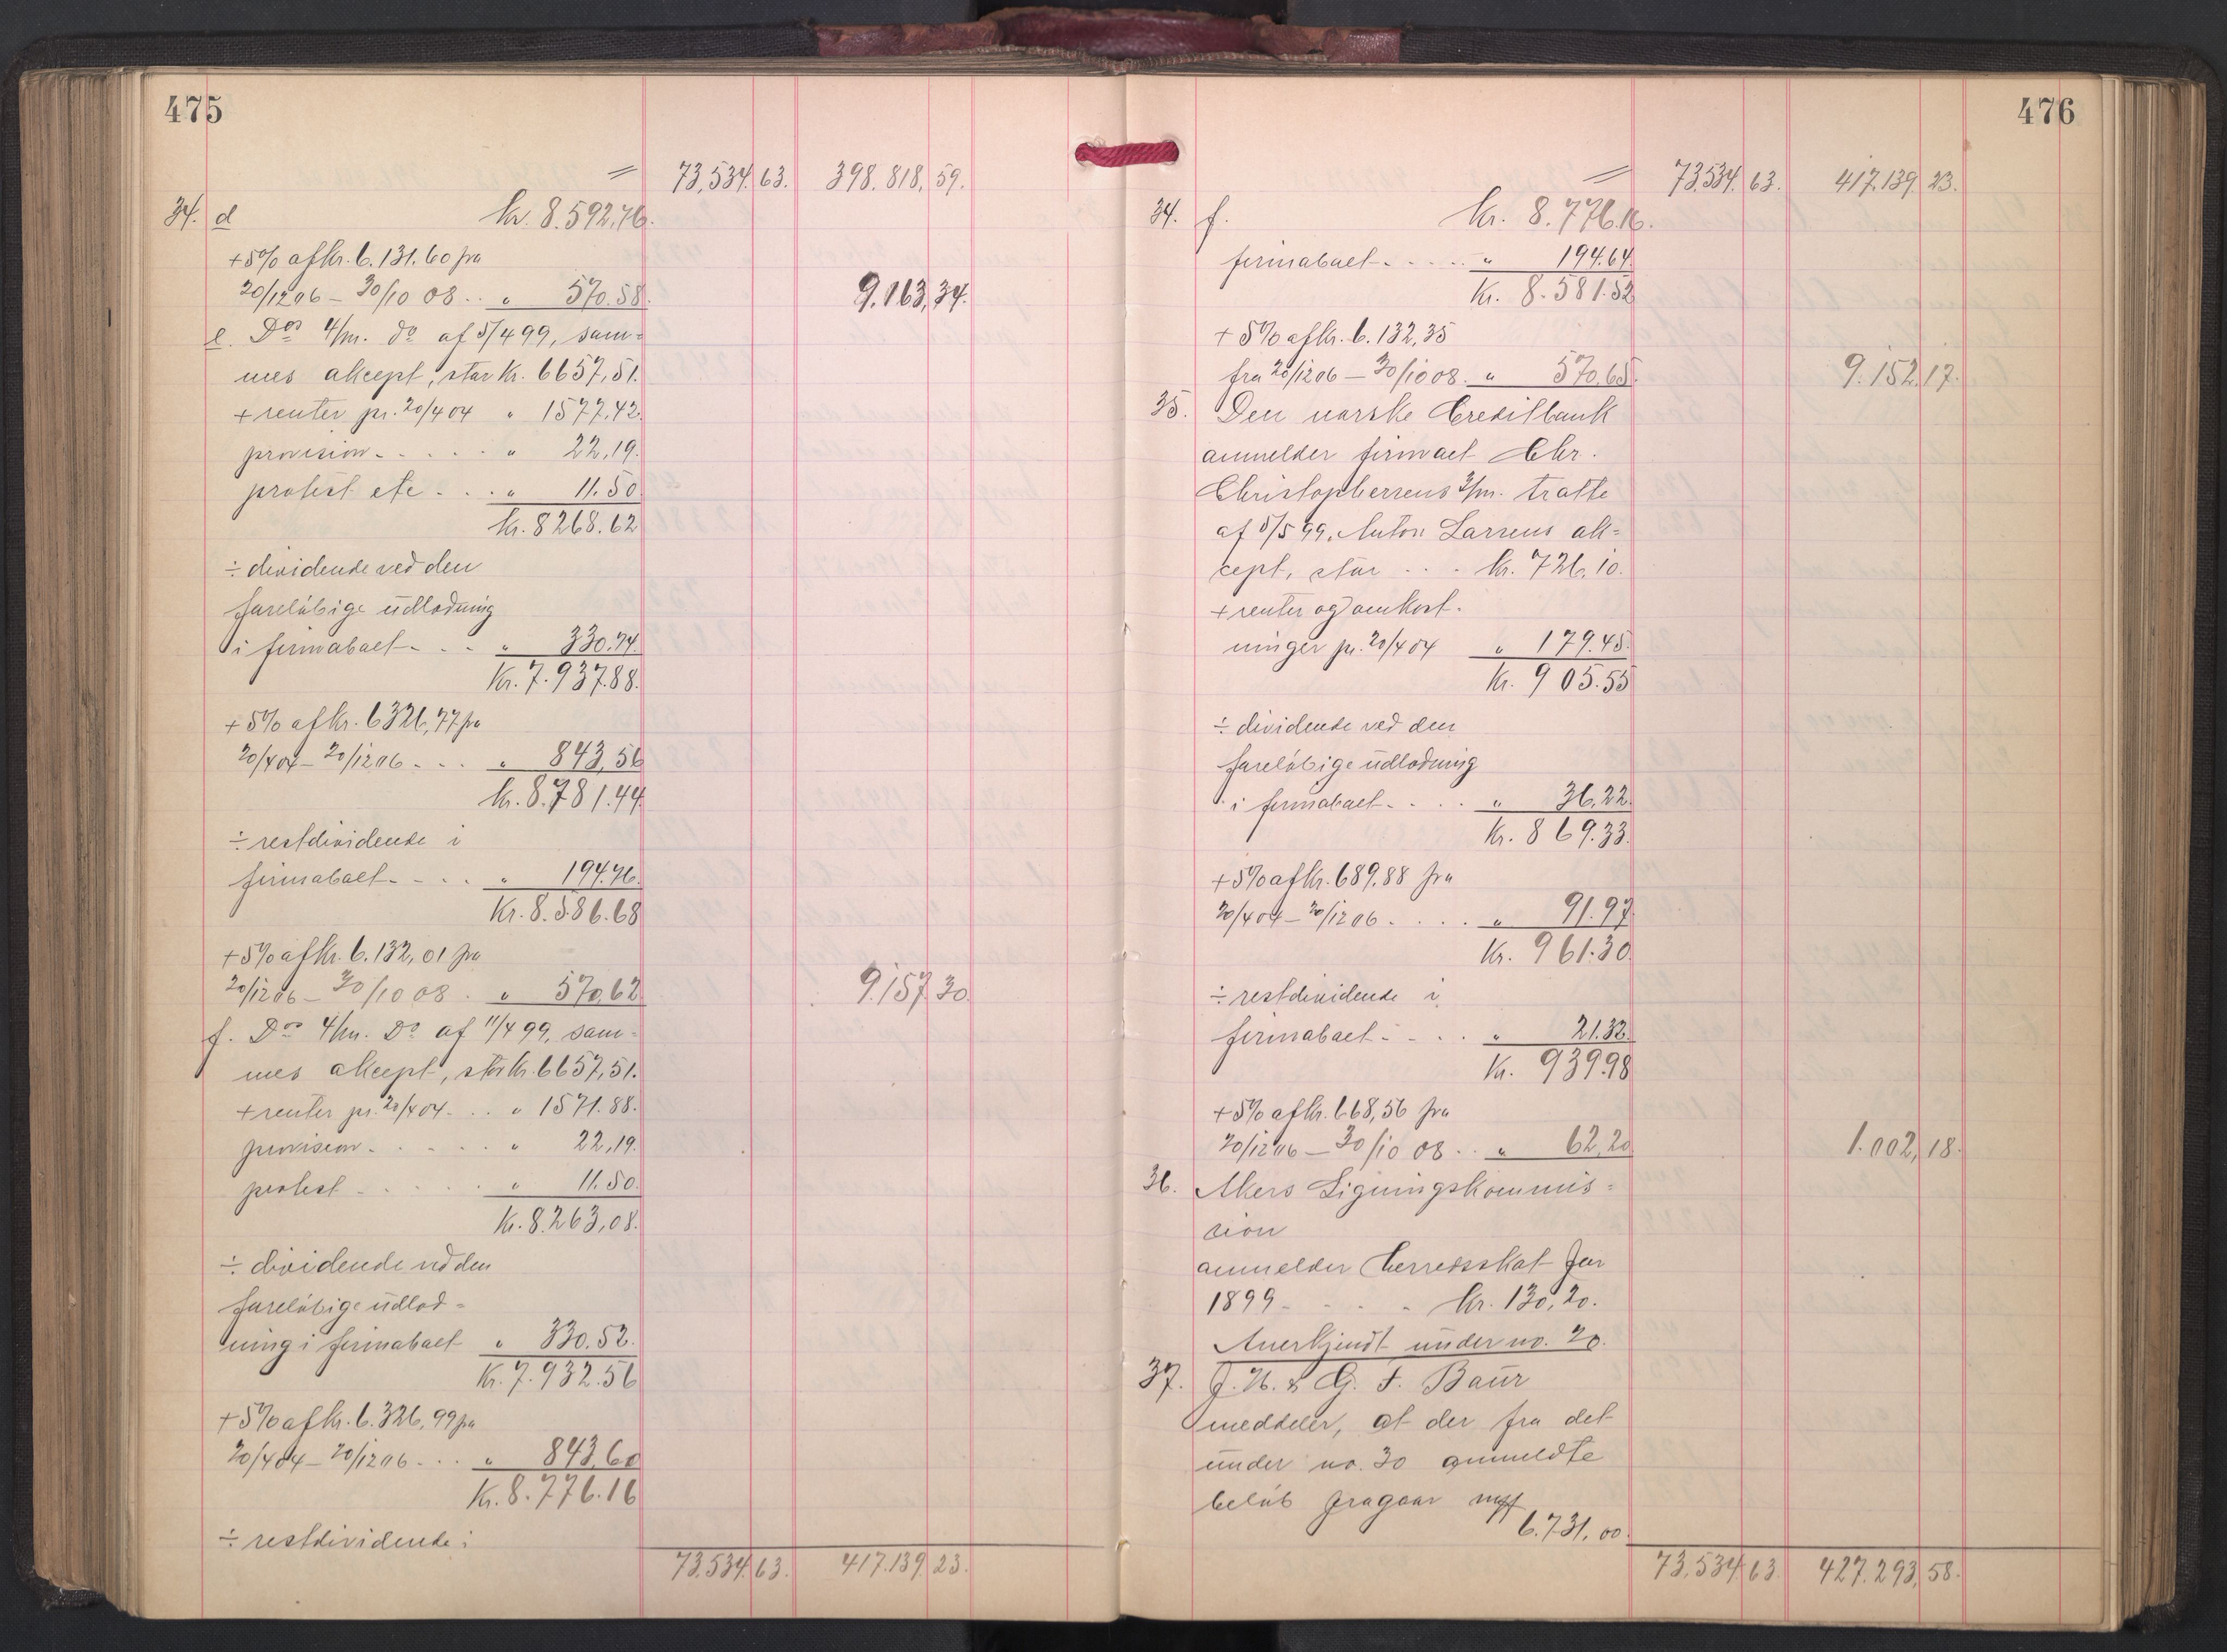 475
= 73,534.63. 398.818,59.
34. d kr. 8.592,76.
+5% af kr. 6.131.60 fra
20/12 06 – 30/10 08 . . " 570.58. 9.163,34.
e. Dos 4/m. do af 5/4 99, sam=
mes akcept, stor Kr. 6657,51.
+ renter pr. 20/4 04 " 1577,42.
provision - . . . . " 22,19.
protest etc - . . . " 11.50
kr. 8268.62
÷ dividende ved den
foreløbige udlodning
i firmaboet - . - " 330.74.
Kr. 7.937.88.
+5% af kr. 6326,77 fra
20/4 04 – 20/12 06 - . . " 843,56
kr. 8.781.44
÷ restdividende i
firmaboet - . - . . " 194.76.
Kr. 8.586.68
+5% af kr. 6.132,01 fra
20/12 06 – 30/10 08 . " 570,62 9.157.30.
f. Dos 4/m. Do af 11/4 99, sam=
mes akcept, stor kr. 6657,51.
+ renter pr. 20/4 04 - . . " 1571.88.
provision - . . . . . " 22,19.
protest - . . . . " 11.50.
Kr. 8.263,08.
÷ dividende ved den
foreløbige udlod=
ning i firmaboet " 330.52.
Kr. 7.932.56
+5% af kr. 6.326,99 fra
20/4 04 – 20/12 06 - . . " 843,60
Kr. 8.776.16
÷ restdividende i
73,534.63. 417.139.23.
476
= 73,534.63. 417.139.23.
34. f. kr. 8.776.16.
firmaboet - . . . . " 194.64.
Kr. 8.581.52
+5% af kr. 6.132,35
fra 20/12 06 – 30/10 08. " 570,65. 9.152,17.
35. Den norske Creditbank
anmelder firmaet Chr.
Christophersens 3/m. tratte
af 5/5 99, Anton Larsens ak=
cept, stor . . . kr. 726,10.
+ renter og omkost.
ninger pr. 20/4 04 " 179.45.
Kr. 905.55
÷ dividende ved den
foreløbige udlodning
i firmaboet - . . . " 36,22.
Kr. 869.33.
+5% af kr. 689.88 fra
20/4 04 – 20/12 06 - . . . " 91.97
Kr. 961.30.
÷ restdividende i
firmaboet - . . . " 21.32.
Kr. 939.98
+5% af kr. 668,56 fra
20/12 06 – 30/10 08 . . " 62,20 1.002,18.
36. Akers Ligningskommis=
sion
anmelder herredsskat for
1899 - . . . kr. 130,20.
Anerkjendt under no. 20.
37. J. H. & G. F. Baur
meddeler, at der fra det
under no. 30 anmeldte
beløb fragaar
6.731,00.
73,534.63. 427.293,58.